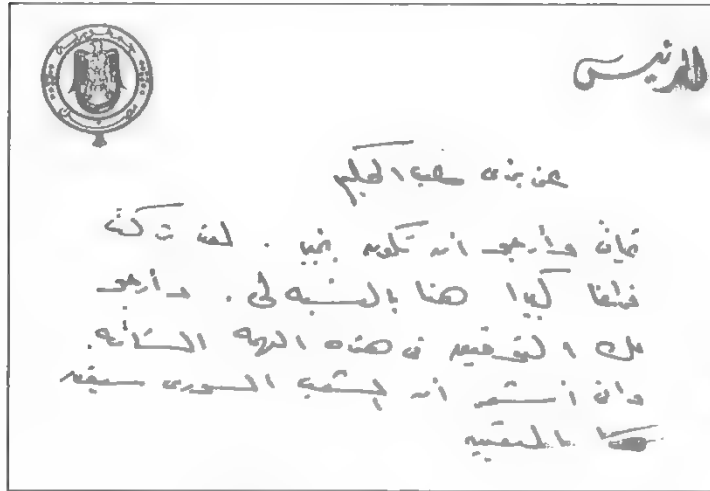 الرئيس
عزيزى عبد الحكيم
تحياتى وأرجو أن تكون بخير . لقد تركت
فراغا كبيرا هنا بالنسبة لى . وأرجو
لك التوفيق فى هذه المهمة الشاقة.
وانى أشعر أن الشعب السورى سيقف